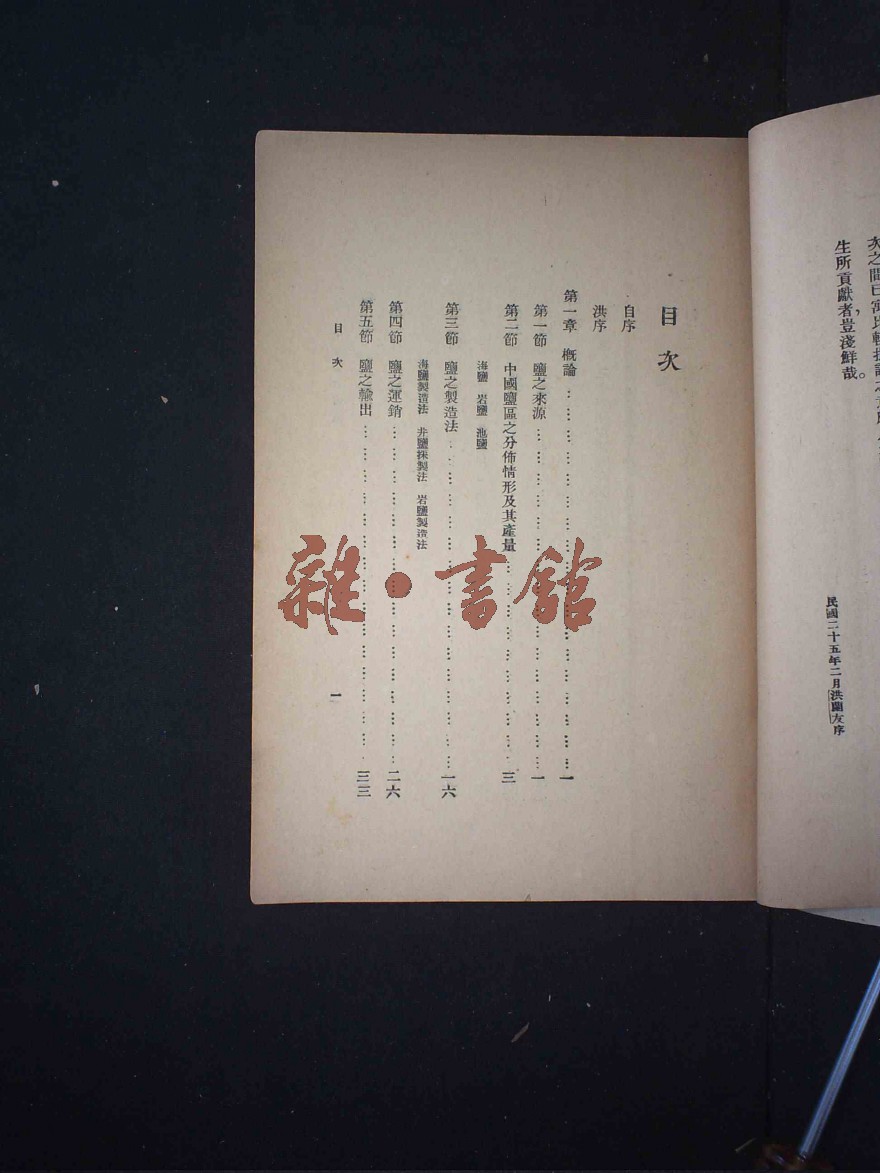 生所貢獻者豈淺鮮哉。
民國二十五年二月洪蘭友序
目次
自序
洪序
第一章 概論……一
第一節 鹽之來源……一
第二節 中國鹽區之分佈情形及其產量……三
海鹽 岩鹽 池鹽
第三節 鹽之製造法……一六
海鹽製造法 井鹽採製法 岩鹽製造法
第四節 鹽之運銷……二六
第五節 鹽之輸出……三三
目次 一
雜·書館